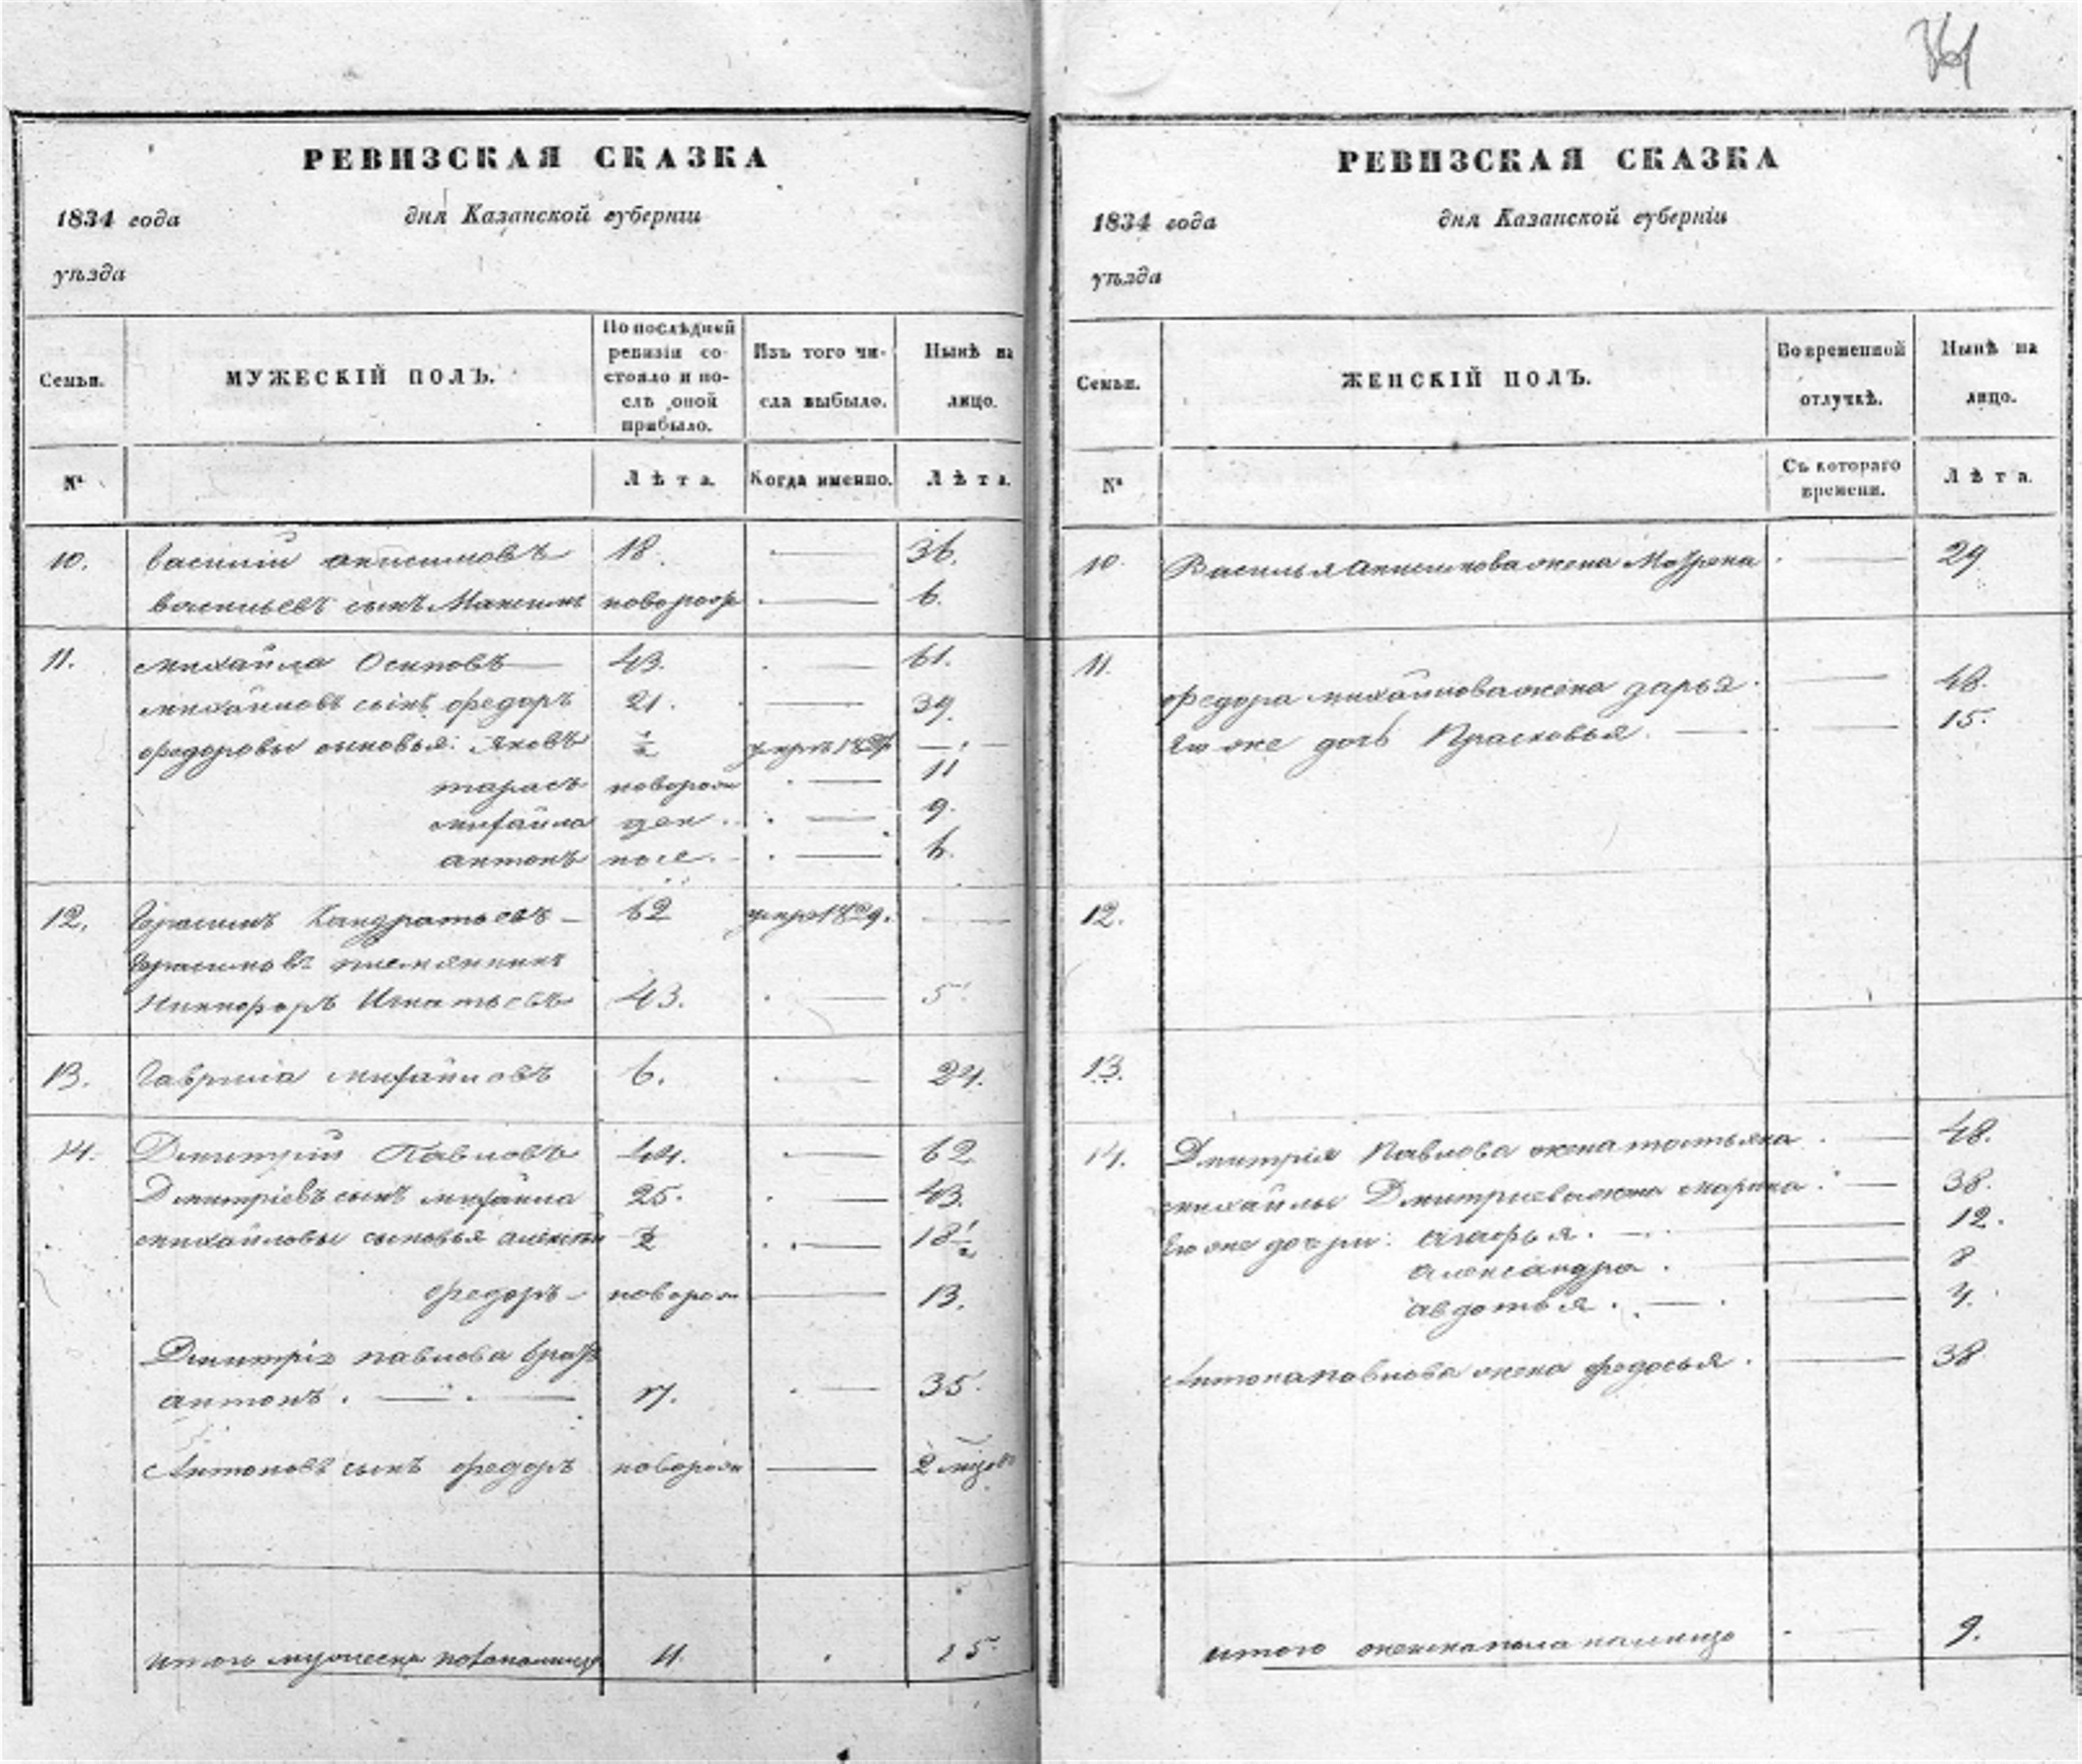 361
РЕВИЗСКАЯ СКАЗКА
1834 года дня Казанской губернiи
уѣзда
Семьи. МУЖЕСКIЙ ПОЛЪ. По послѣдней ревизiи состояло и послѣ оной прибыло. Изъ того числа выбыло. Нынѣ на лицо.
№ Лѣта. Когда именно. Лѣта.
10. Василiй анисимовъ 18. — 36.
васильевъ сынъ Максимъ новорож — 6.
11. михайла Осиповъ 43. — 61.
михайловъ сынъ федоръ 21. — 39.
федоровы сыновья: Яковъ ½ умръ — · —
тарасъ новорож — 11
михайла — 9.
антонъ после. — 6.
12. Герасимъ Кандратьевъ — 62 умръ 1829. —
Герасимовъ племянникъ
Никифоръ Игнатьевъ 43. —
13. Гаврила михайловъ 6. — 24.
14. Дмитрiй Павловъ 44. — 62
Дмитрiевъ сынъ михайла 25. — 43.
михайловы сыновья алексей ½ — 18 ½
федоръ — новорож — 13.
Дмитрiя павлова братъ
антонъ. — 17. — 35.
Антоновъ сынъ федоръ новорож — 2
итого мужеска пола налицо 15.
РЕВИЗСКАЯ СКАЗКА
1834 года дня Казанской губернiи
уѣзда
Семьи. ЖЕНСКIЙ ПОЛЪ. Во временной отлучкѣ. Нынѣ на лицо.
№ Съ котораго времени. Лѣта.
10. Василья анисимова жена Матрена. — 29
11.
федора михайлова жена дарья. — 48.
Его же дочь Прасковья. — 15.
12.
13.
14. Дмитрiя Павлова жена татьяна. — 48.
михайлы Дмитриева жена марина. — 38.
Его же дочери: агафья. — 12.
александра. — 8
авдотья. — 4.
Антона павлова жена федосья. — 38
итого женска пола налицо — 9.